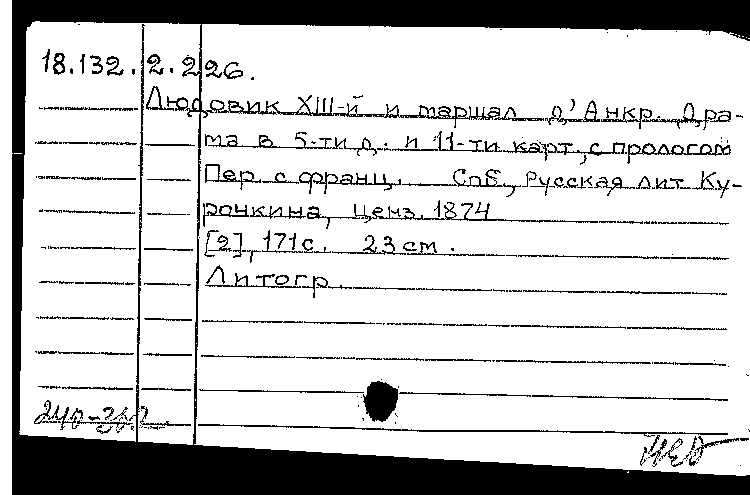 18.132.2.226.
Людовик XIII-й и маршал д'Анкр. Дра-
ма в 5-ти д. и 11-ти карт., с прологом
Пер. с франц. Спб., Русская лит. Ку-
рочкина, ценз. 1874
[2], 171 с. 23 см.
Литогр.